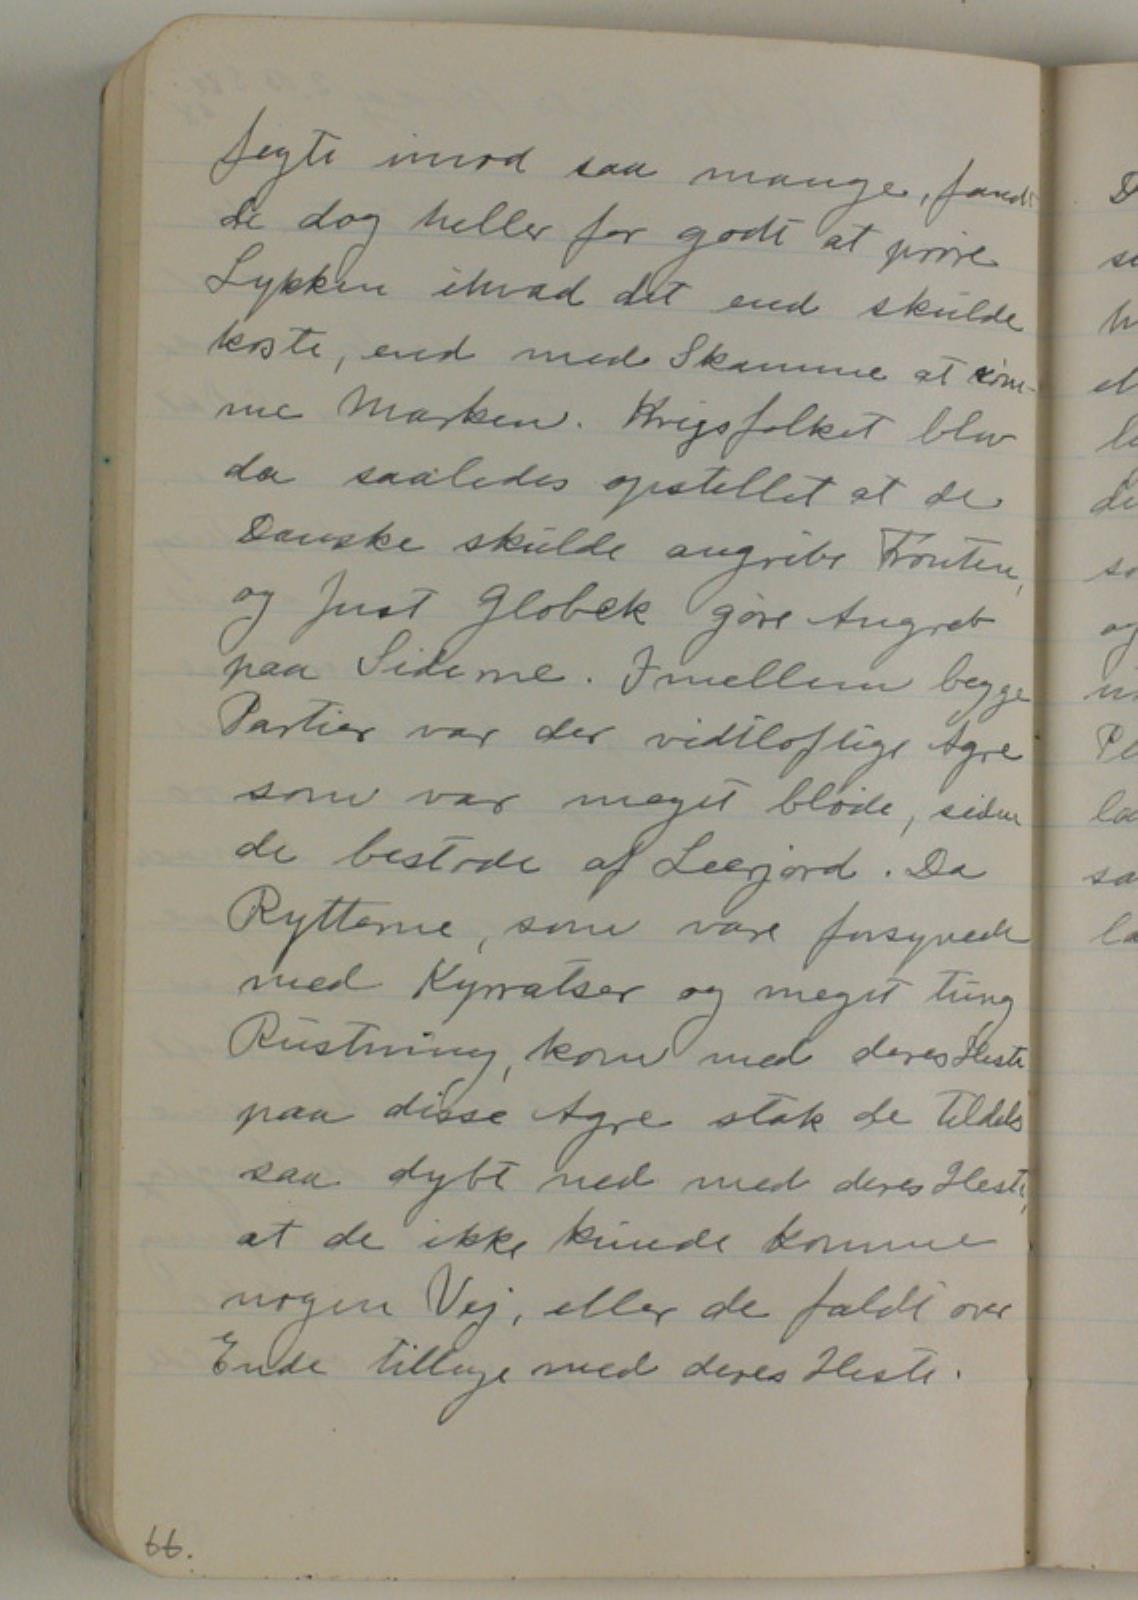 fegte imod saa mange, fandt
de dog heller for godt at prøve
Lykken ihvad det end skulde
koste, end med Skamme at røm-
me Marken. Krigsfolket blev
da saaledes opstellet at de
Danske skulde angribe Fronten,
og Just Globek gøre Angreb
paa Siderne. Imellem begge
Partier var der vidtløftige Agre
som var meget bløde, siden
de bestode af Leerjord. Da
Rytterne, som vare forsynede
med Kyrratser og meget tung
Rustning, kom med deres Heste
paa disse Agre stak de tildels
saa dybt ned med deres Heste,
at de ikke kunde komme
nogen Vej, eller de faldt over
Ende tillige med deres Heste.
66.